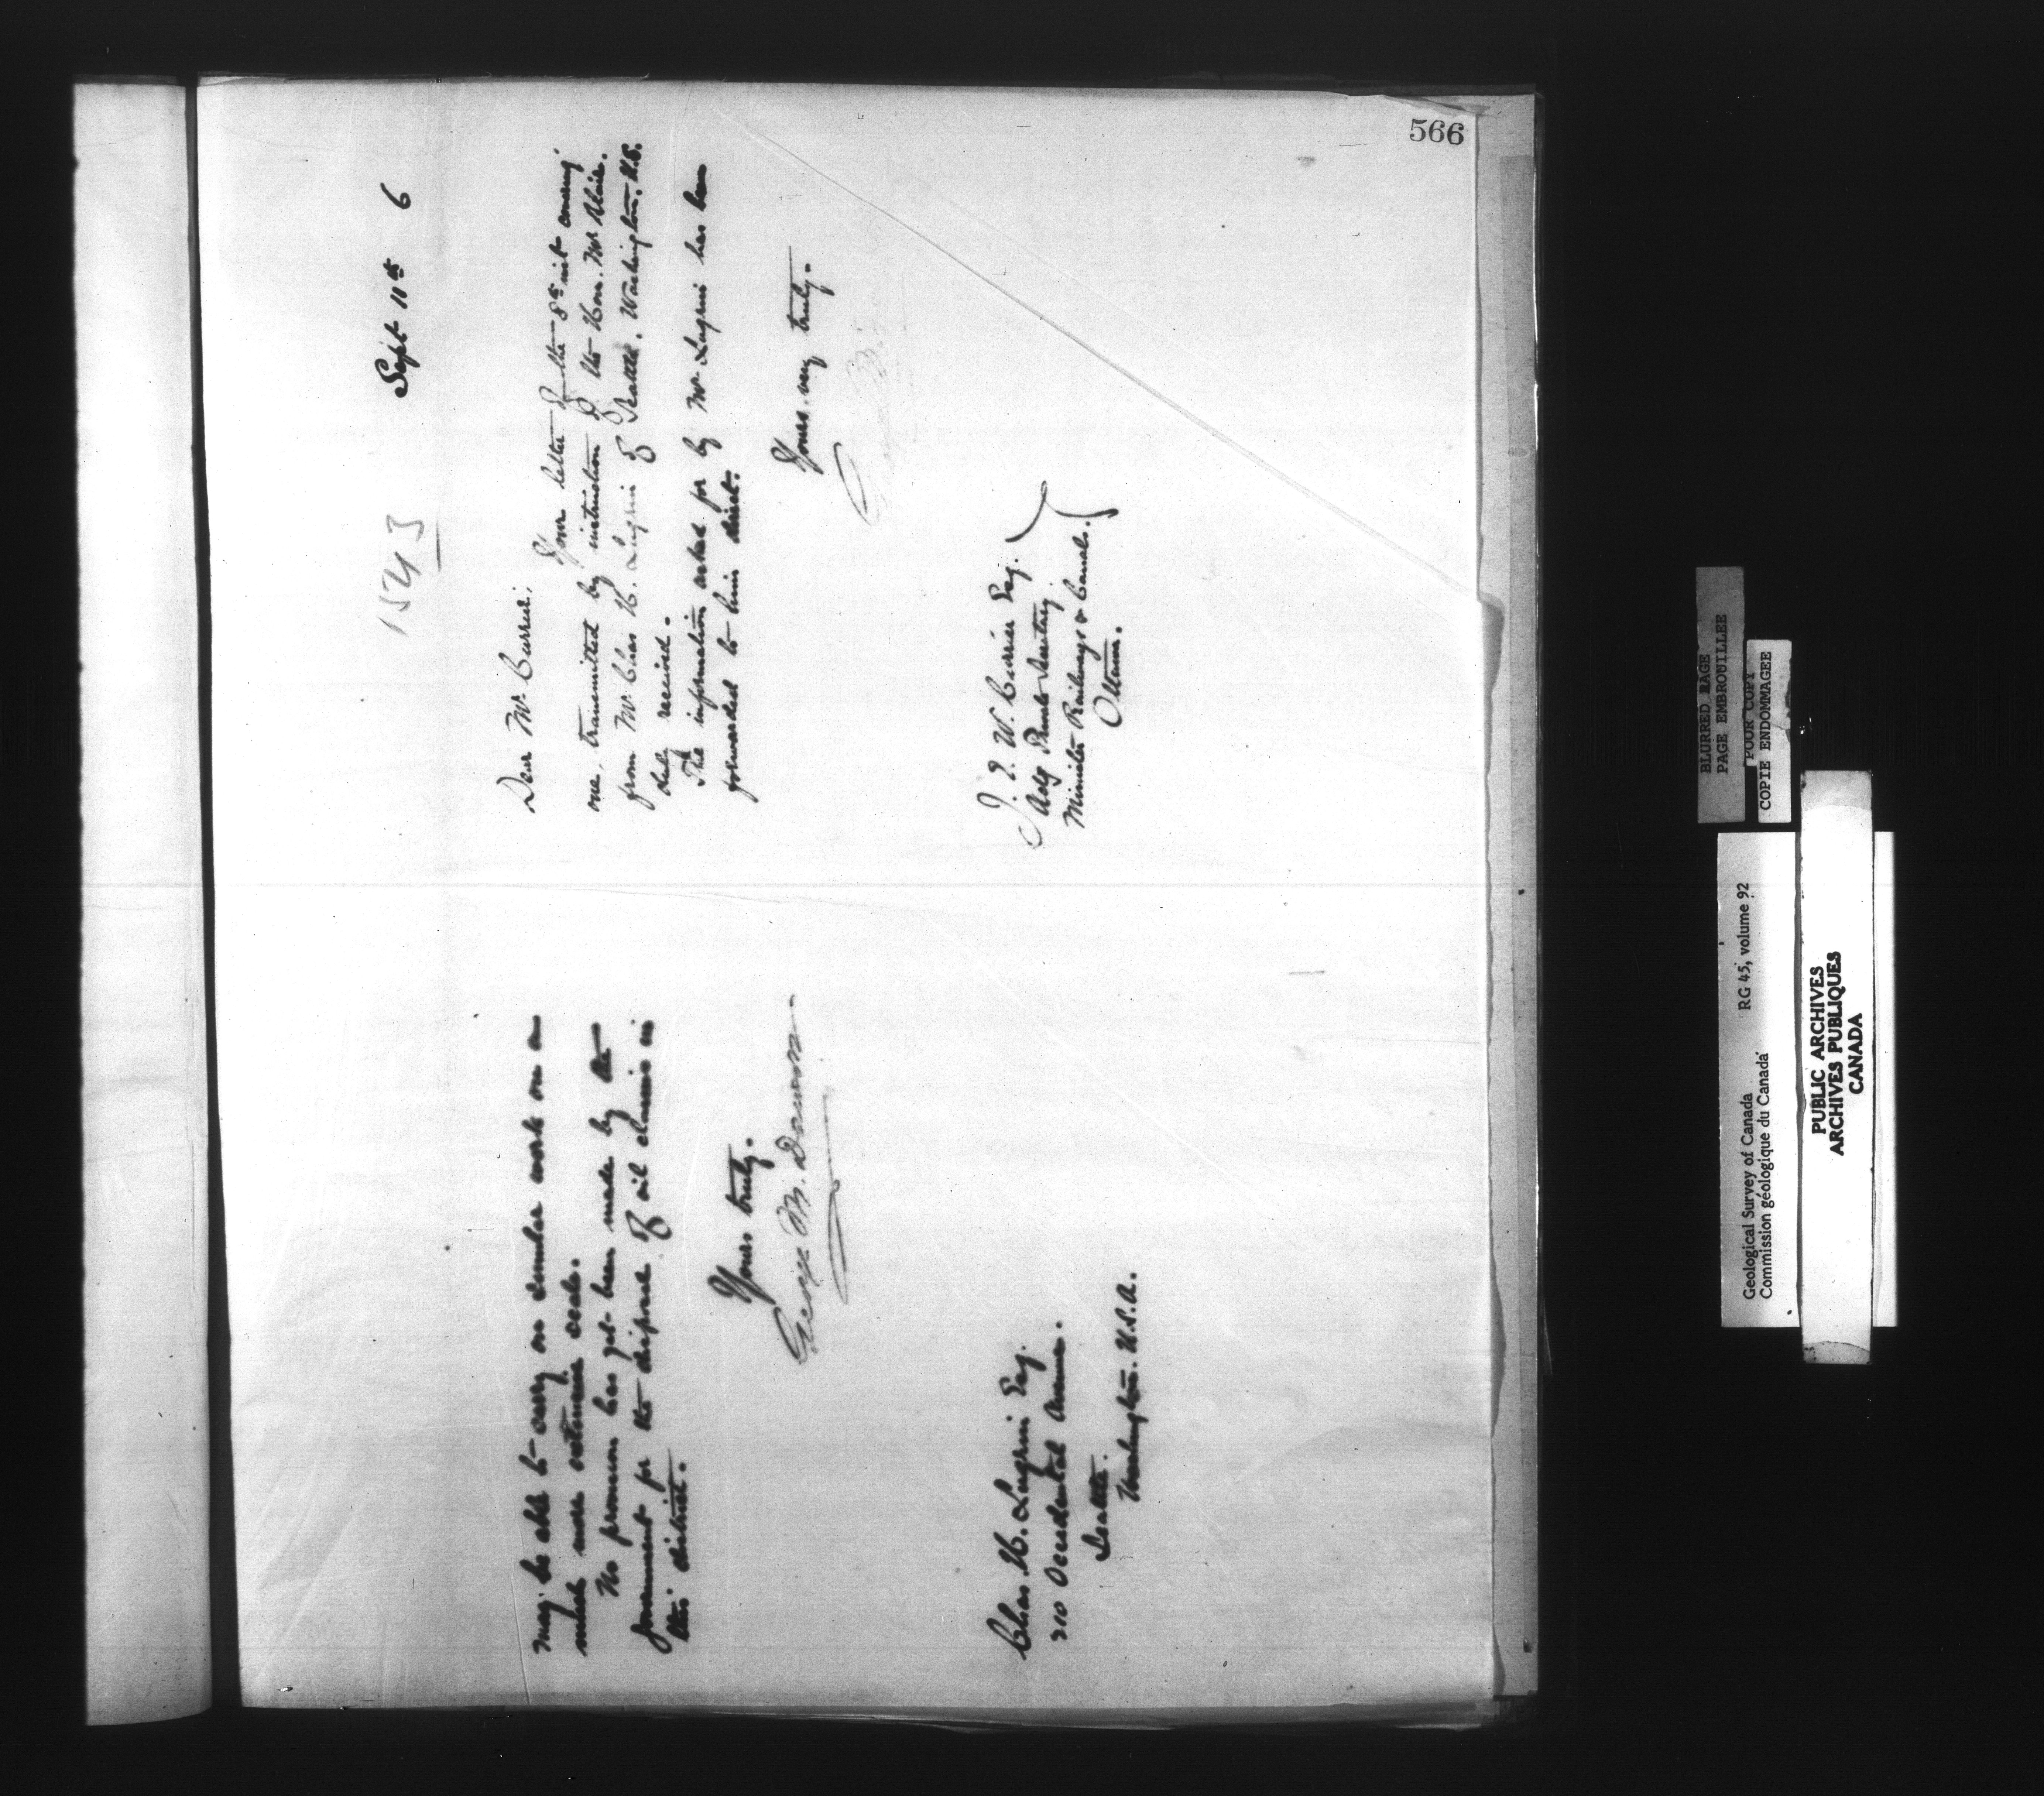 566
may be able to carry on similar work on a
much more extensive scale.
No provision has yet been made by the
government for the disposal of oil claims in
this district.
Yours truly.
George M. Dawson
Chas. H. Lugrin Esq.
210 Occidental Avenue.
Seattle.
Washington. U.S.A.
Sept 11th 6
1543
Dear Mr. Currier,
Your letter of the 8th inst covering
one, transmitted by instruction of the Hon. Mr Blair.
from Mr. Chas H. Lugrin of Seattle. Washington. U.S.
duly received.
The information asked for by Mr. Lugrin has been
forwarded to him direct.
Yours very truly.
J. E. W. Currier Esq.
Actg Private Secretary
Minister Railways & Canals.
Ottawa.
BLURRED PAGE
PAGE EMBROUILLEE
POUR COPY
COPIE ENDOMMAGEE
Geological Survey of Canada RG 45, volume 92
Commission géologique du Canada
PUBLIC ARCHIVES
ARCHIVES PUBLIQUES
CANADA